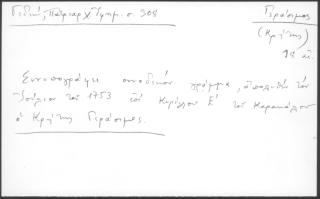 Γεδεών, Πατριαρχ. Ἐφημ. σ. 308
Γεράσιμος
(Κρήτης)
18 αἰ.
Συνυπογράφει συνοδικὸν γράμμα, ἀπολυθὲν τὸν
Ἰούλιον τοῦ 1753 ἐπὶ Κυρίλλου Ε΄ τοῦ Καρακάλου
ὁ Κρήτης Γεράσιμος.